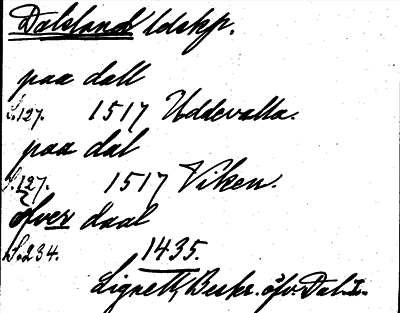 Dalsland ldskp.
paa dall
S.127. 1517 Uddevalla.
paa dal
S.127. 1517 Viken.
öfver daal
S.234. 1435.
Lignell, Beskr. öfv. Dal. I.